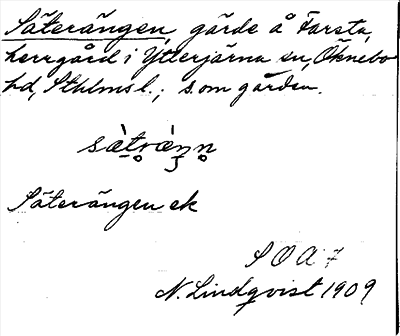 Säterängen, gärde å Farsta,
herrgård i Ytterjärna sn, Öknebo
hd, Sthlms l.; som gården.
Säterängen ek
S O A 7
N. Lindqvist 1909